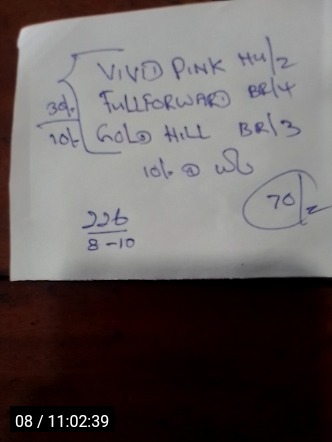 VIVID PINK H4/2
30/. FULLFORWARD BR/4
10/. GOLD HILL BR/3
10/. @
70/=
226
8-10
08 / 11:02:39